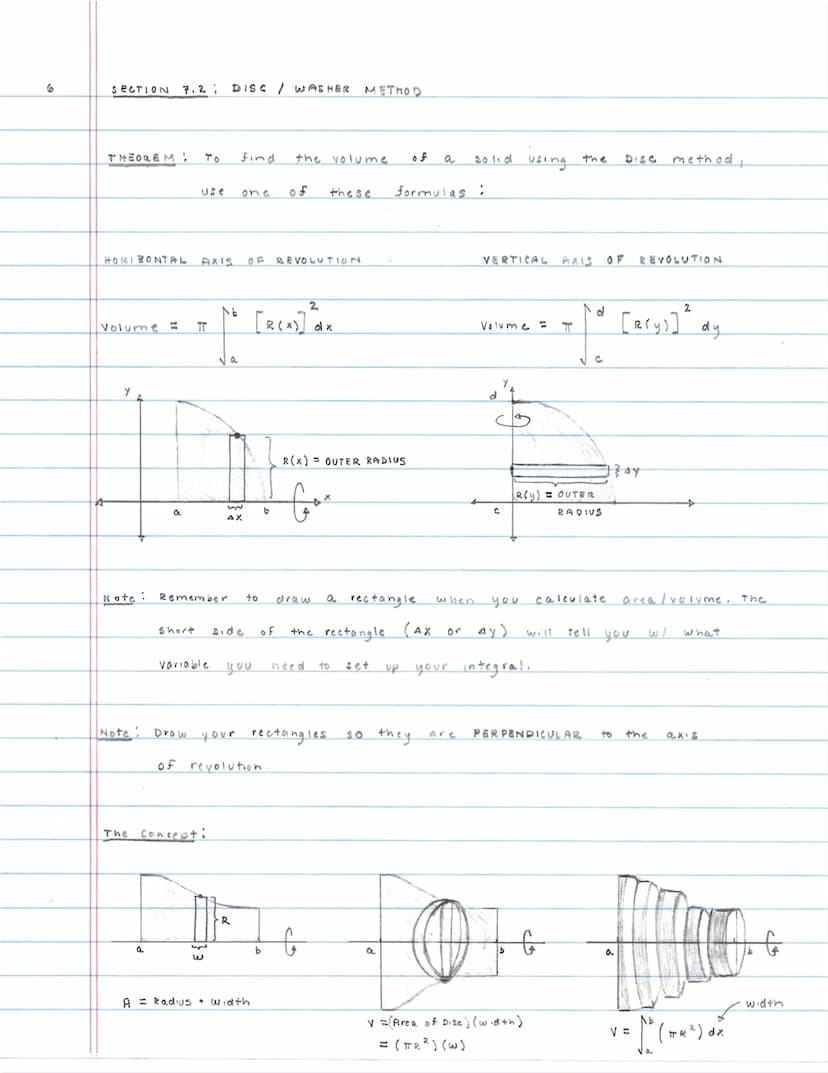 6 SECTION 7.2: DISC / WASHER METHOD
THEOREM: To find the volume of a solid using the Disc method,
use one of these formulas:
HORIZONTAL AXIS OF REVOLUTION
Volume = π ∫_a^b [R(x)]² dx
y
R(x) = OUTER RADIUS
x
a
Δx
b
VERTICAL AXIS OF REVOLUTION
Volume = π ∫_c^d [R(y)]² dy
y
d
Δy
R(y) = OUTER
RADIUS
c
Note: Remember to draw a rectangle when you calculate area/volume. The
short side of the rectangle (Δx or Δy) will tell you w/ what
variable you need to set up your integral.
Note: Draw your rectangles so they are PERPENDICULAR to the axis
of revolution.
The Concept:
R
a
w
b
A = Radius • width
a
b
V = (Area of Disc)(width)
= (πR²)(w)
a
b
width
V = ∫_a^b (πR²) dx